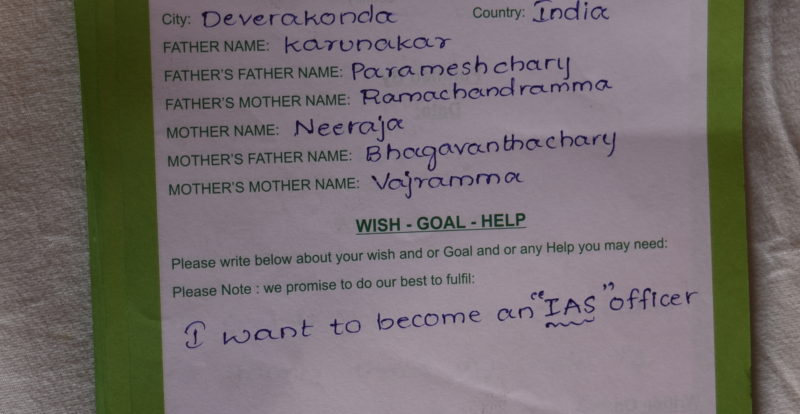 City: Deverakonda Country: India
FATHER NAME: Karunakar
FATHER'S FATHER NAME: Parameshchary
FATHER'S MOTHER NAME: Ramachandramma
MOTHER NAME: Neeraja
MOTHER'S FATHER NAME: Bhagavanthachary
MOTHER'S MOTHER NAME: Vajramma
WISH - GOAL - HELP
Please write below about your wish and or Goal and or any Help you may need:
Please Note : we promise to do our best to fulfil:
I want to become an "IAS" officer